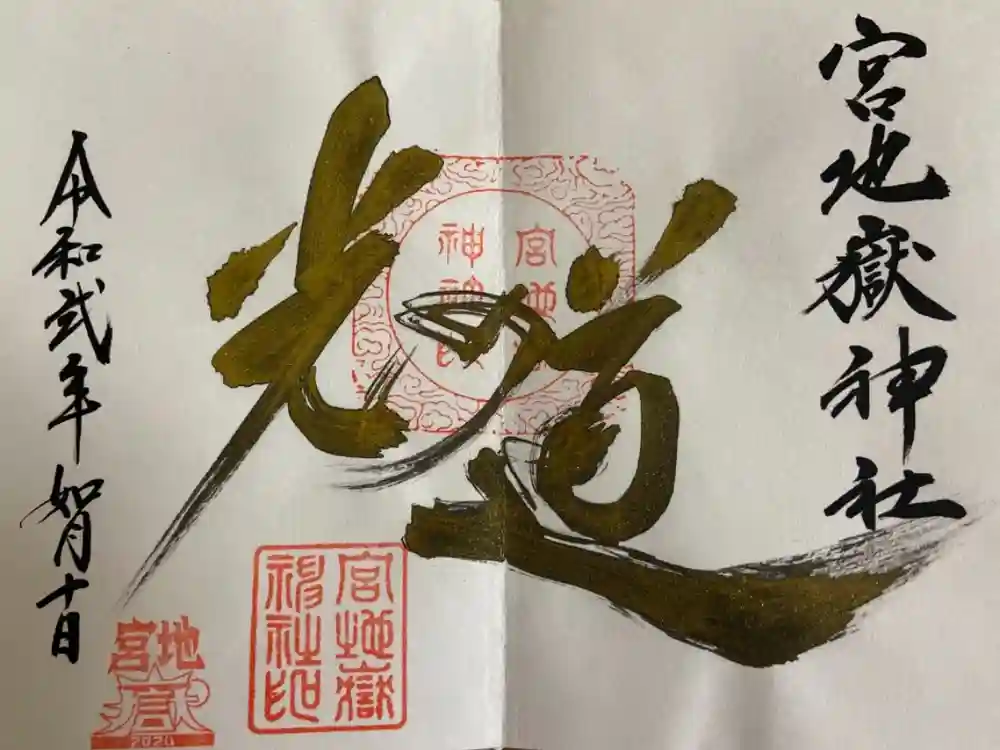 宮地嶽神社
光の道
令和弐年如月十日
宮地嶽
神社印
宮地嶽
神社印
宮地
嶽